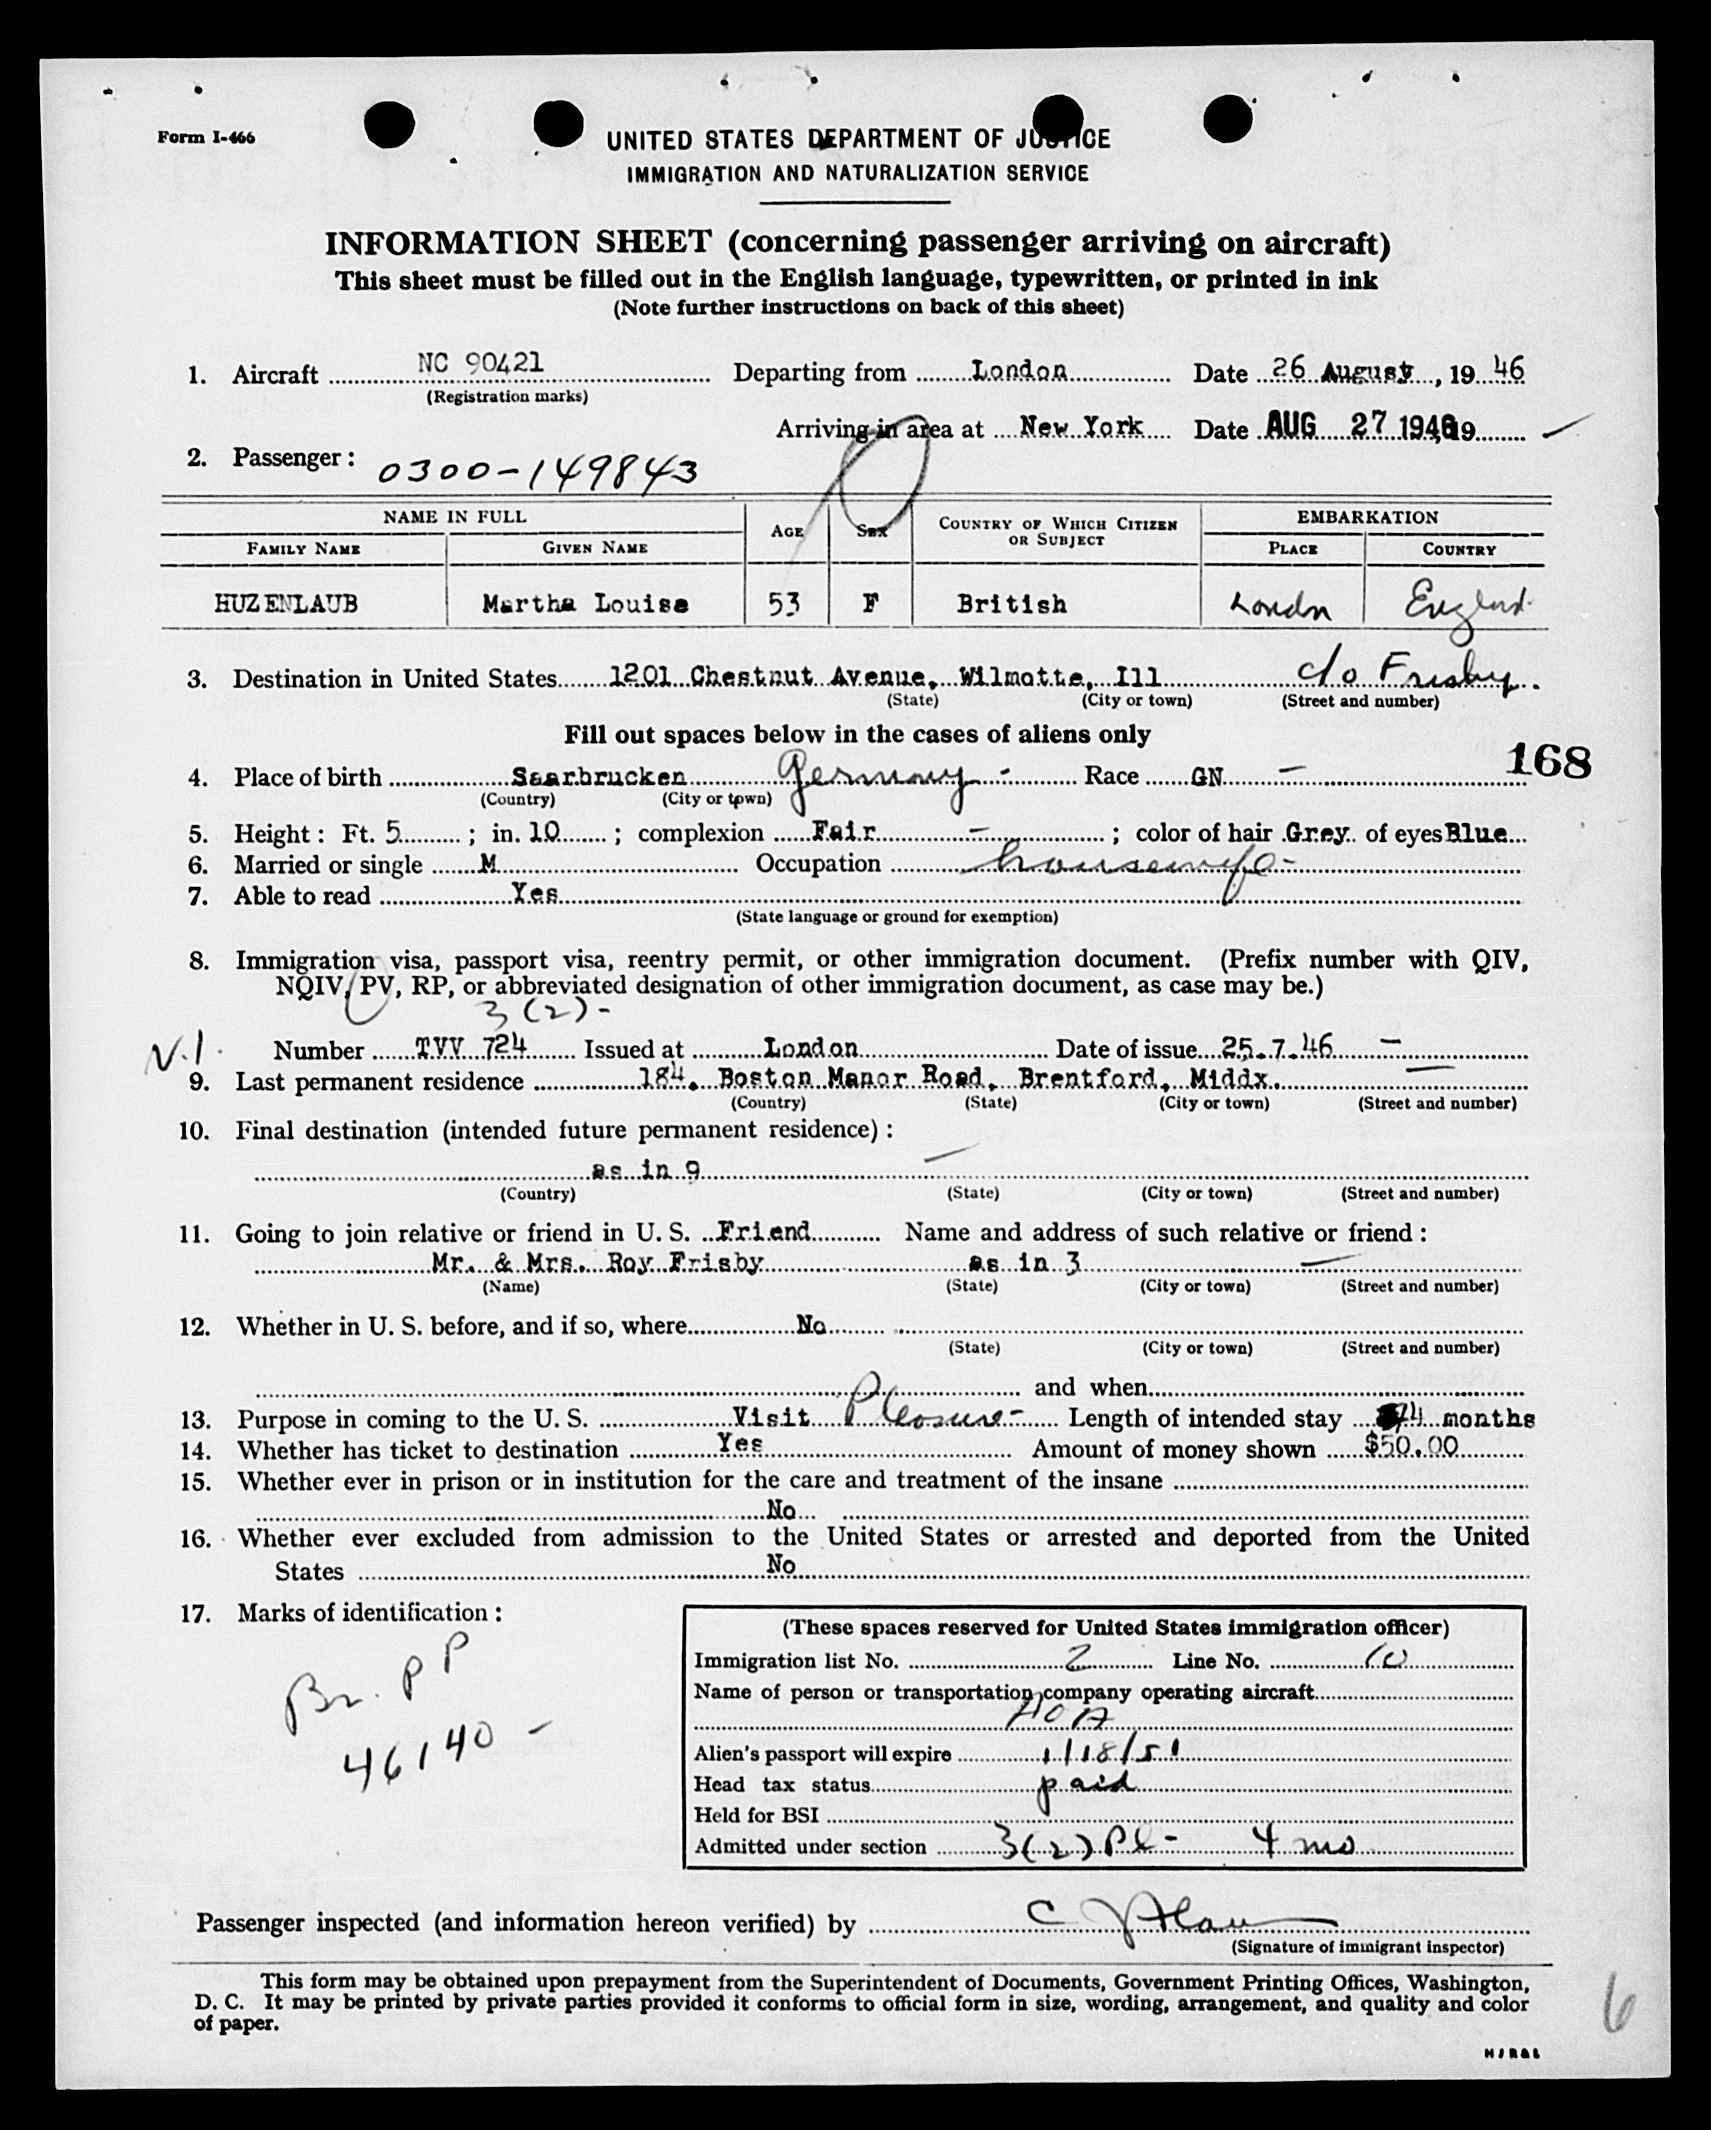 Form I-466
UNITED STATES DEPARTMENT OF JUSTICE
IMMIGRATION AND NATURALIZATION SERVICE
INFORMATION SHEET (concerning passenger arriving on aircraft)
This sheet must be filled out in the English language, typewritten, or printed in ink
(Note further instructions on back of this sheet)
1. Aircraft NC 90421 Departing from London Date 26 August, 19 46
(Registration marks)
Arriving in area at New York Date AUG 27 1946 19
2. Passenger: 0300-149843
NAME IN FULL AGE SEX COUNTRY OF WHICH CITIZEN OR SUBJECT EMBARKATION
FAMILY NAME GIVEN NAME PLACE COUNTRY
HUZENLAUB Martha Louise 53 F British London England
3. Destination in United States 1201 Chestnut Avenue, Wilmotte, Ill c/o Frisby
(State) (City or town) (Street and number)
Fill out spaces below in the cases of aliens only
168
4. Place of birth Saarbrucken Germany - Race GN -
(Country) (City or town)
5. Height: Ft. 5 ; in. 10 ; complexion Fair - ; color of hair Grey of eyes Blue
6. Married or single M Occupation housewife -
7. Able to read Yes
(State language or ground for exemption)
8. Immigration visa, passport visa, reentry permit, or other immigration document. (Prefix number with QIV,
NQIV, PV, RP, or abbreviated designation of other immigration document, as case may be.)
3(2)-
V.1. Number TVV 724 Issued at London Date of issue 25.7.46 -
9. Last permanent residence 184, Boston Manor Road, Brentford, Middx.
(Country) (State) (City or town) (Street and number)
10. Final destination (intended future permanent residence):
as in 9 -
(Country) (State) (City or town) (Street and number)
11. Going to join relative or friend in U. S. Friend Name and address of such relative or friend:
Mr. & Mrs. Roy Frisby as in 3 -
(Name) (State) (City or town) (Street and number)
12. Whether in U. S. before, and if so, where No
(State) (City or town) (Street and number)
and when
13. Purpose in coming to the U. S. Visit Pleasure - Length of intended stay 4 months
14. Whether has ticket to destination Yes Amount of money shown $50.00
15. Whether ever in prison or in institution for the care and treatment of the insane
No
16. Whether ever excluded from admission to the United States or arrested and deported from the United
States No
17. Marks of identification:
Br. PP
46140 -
(These spaces reserved for United States immigration officer)
Immigration list No. 2 Line No. 10
Name of person or transportation company operating aircraft
AOA
Alien's passport will expire 1/18/51
Head tax status paid
Held for BSI
Admitted under section 3(2) Pl - 4 mo
Passenger inspected (and information hereon verified) by C
(Signature of immigrant inspector)
This form may be obtained upon prepayment from the Superintendent of Documents, Government Printing Offices, Washington,
D. C. It may be printed by private parties provided it conforms to official form in size, wording, arrangement, and quality and color
of paper.
6